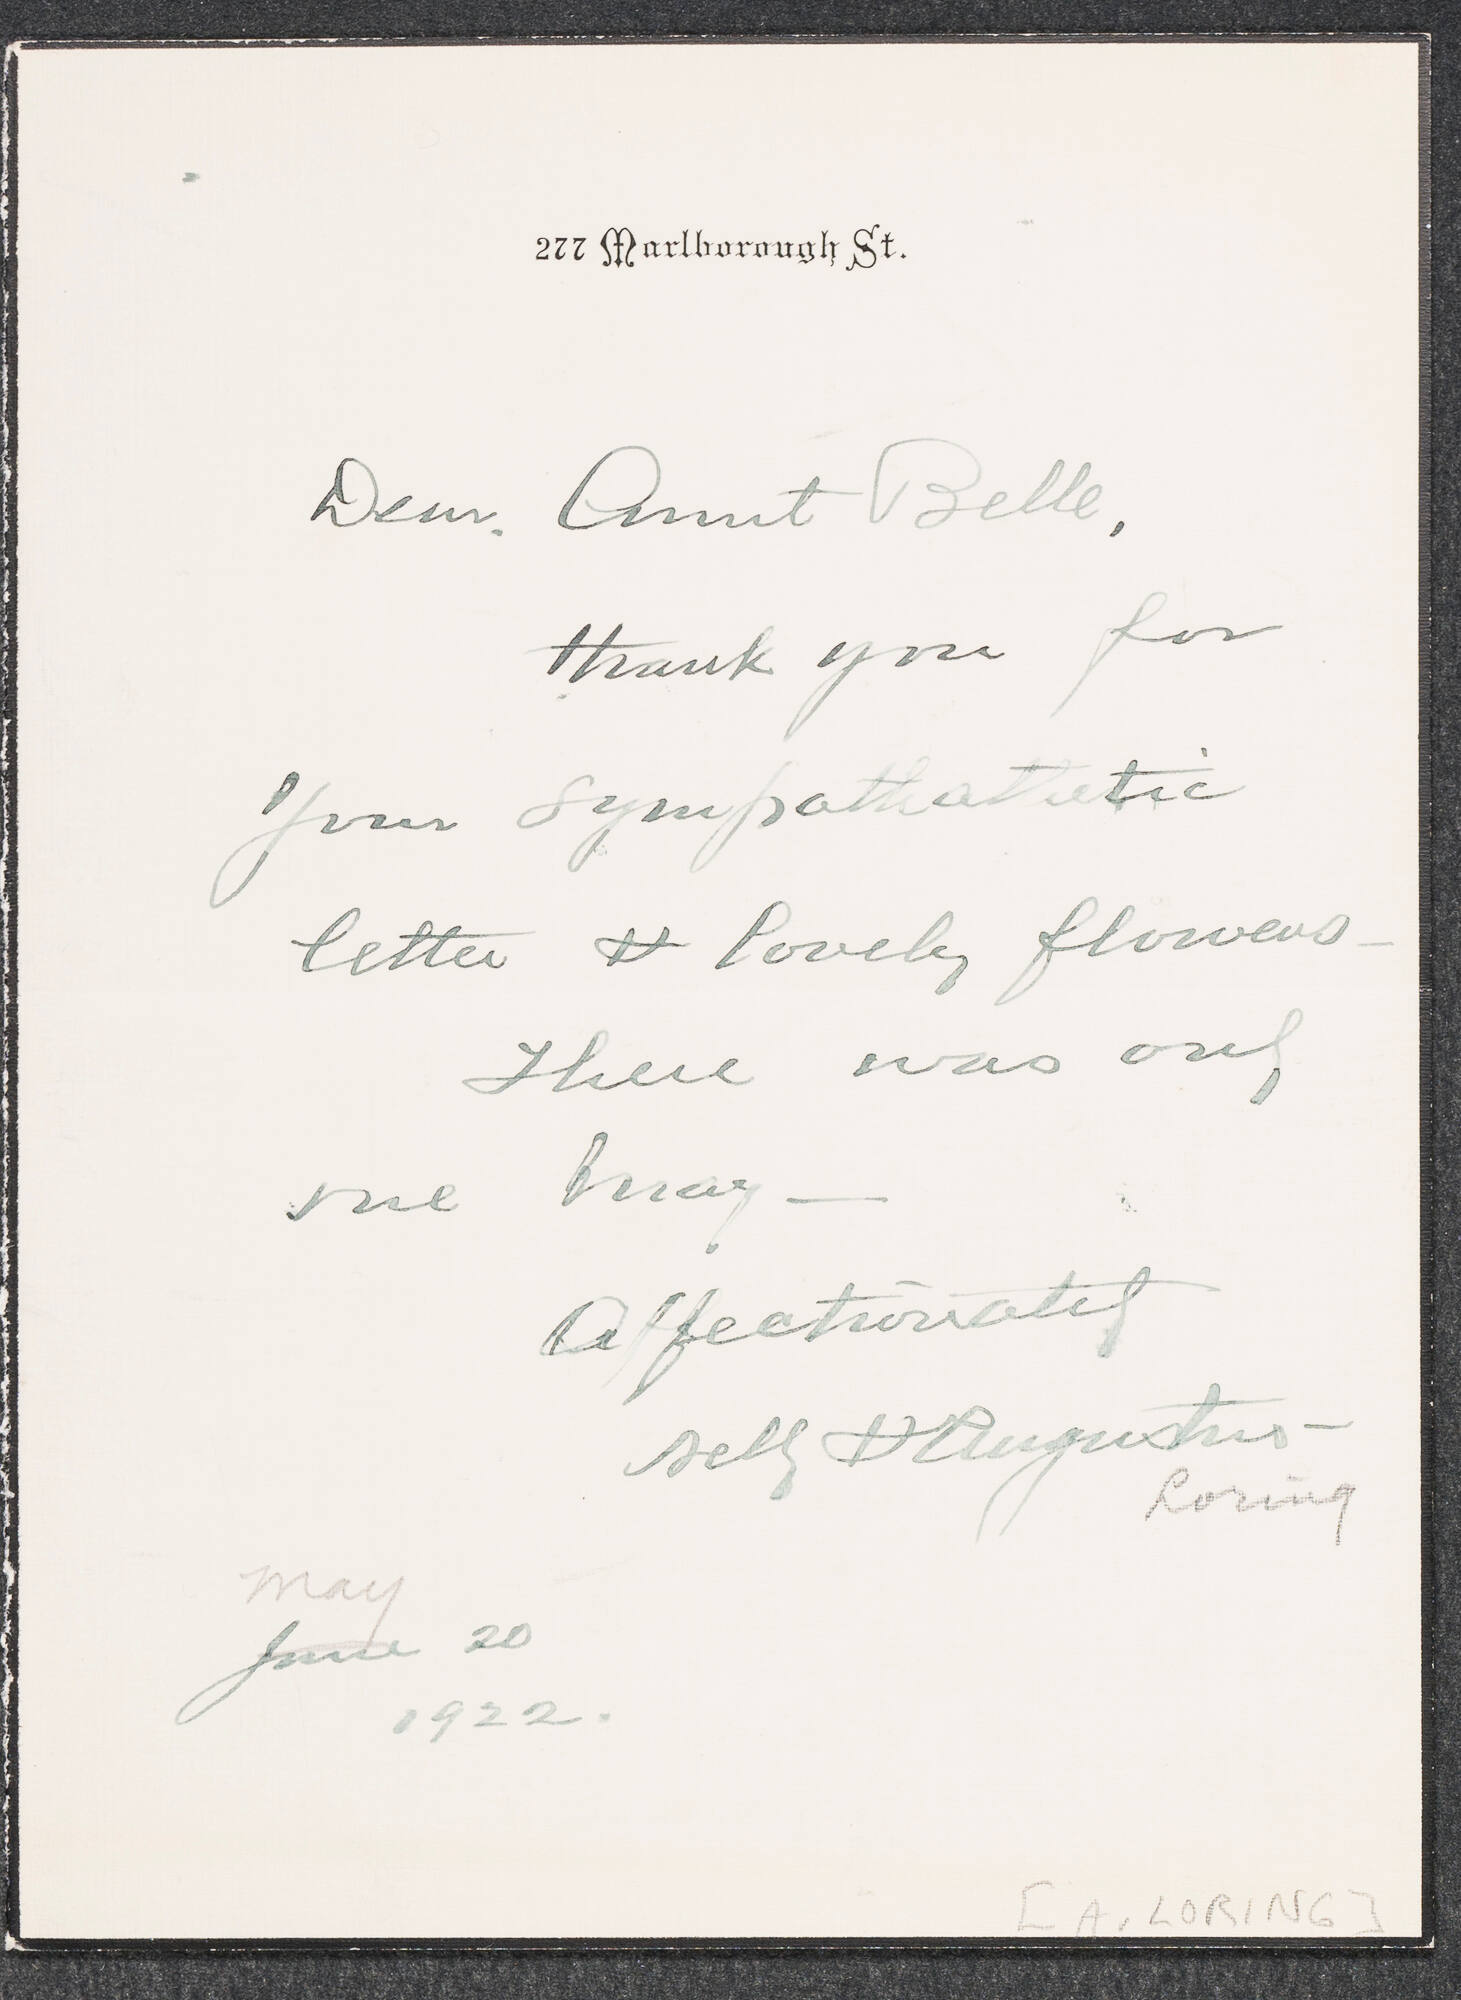 277 Marlborough St.
Dear Aunt Belle,
thank you for
your sympathathetic
letter & lovely flowers -
There was only
one May —
Affectionately
& Augustus -
Loring
May
June 20
1922.
[A. LORING]